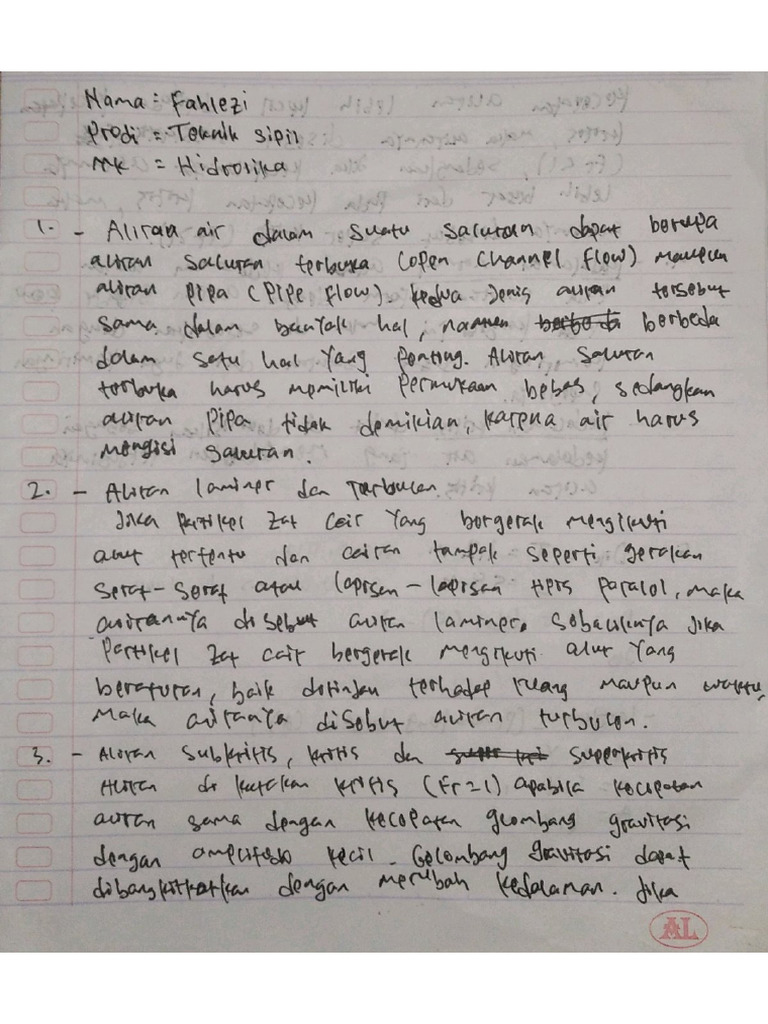 Nama = Fahlezi
Prodi = Teknik Sipil
MK = Hidrolika
1. - Aliran air dalam suatu saluran dapat berupa
aliran saluran terbuka (open channel flow) maupun
aliran pipa (pipe flow). kedua jenis aliran tersebut
sama dalam banyak hal, namun berbeda
dalam satu hal yang penting. Aliran saluran
terbuka harus memiliki permukaan bebas, sedangkan
aliran pipa tidak demikian, karena air harus
mengisi saluran.
2. - Aliran laminer dan Turbulen
Jika partikel zat cair yang bergerak mengikuti
alur tertentu dan cairan tampak seperti gerakan
serat-serat atau lapisan-lapisan tipis paralel, maka
alirannya disebut aliran laminer. Sebaliknya jika
Partikel zat cair bergerak mengikuti alur yang
beraturan, baik ditinjau terhadap ruang maupun waktu,
Maka alirannya disebut aliran turbulen.
3. - Aliran Subkritis, kritis dan superkritis
Aliran di katakan kritis (Fr=1) apabila kecepatan
aliran sama dengan kecepatan glombang gravitasi
dengan amplitodo kecil. Gelombang gravitasi dapat
dibangkitkatkan dengan merubah kedalaman. Jika
AL